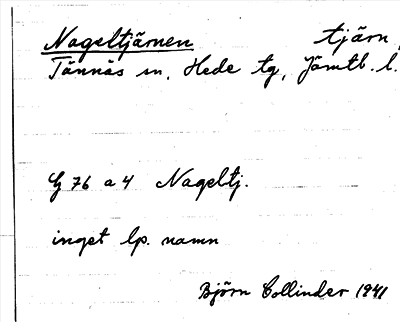 Nageltjärnen tjärn,
Tännäs sn, Hede tg, Jämtb. l.
G 76 a 4 Nageltj.
inget lp. namn
Björn Collinder 1941